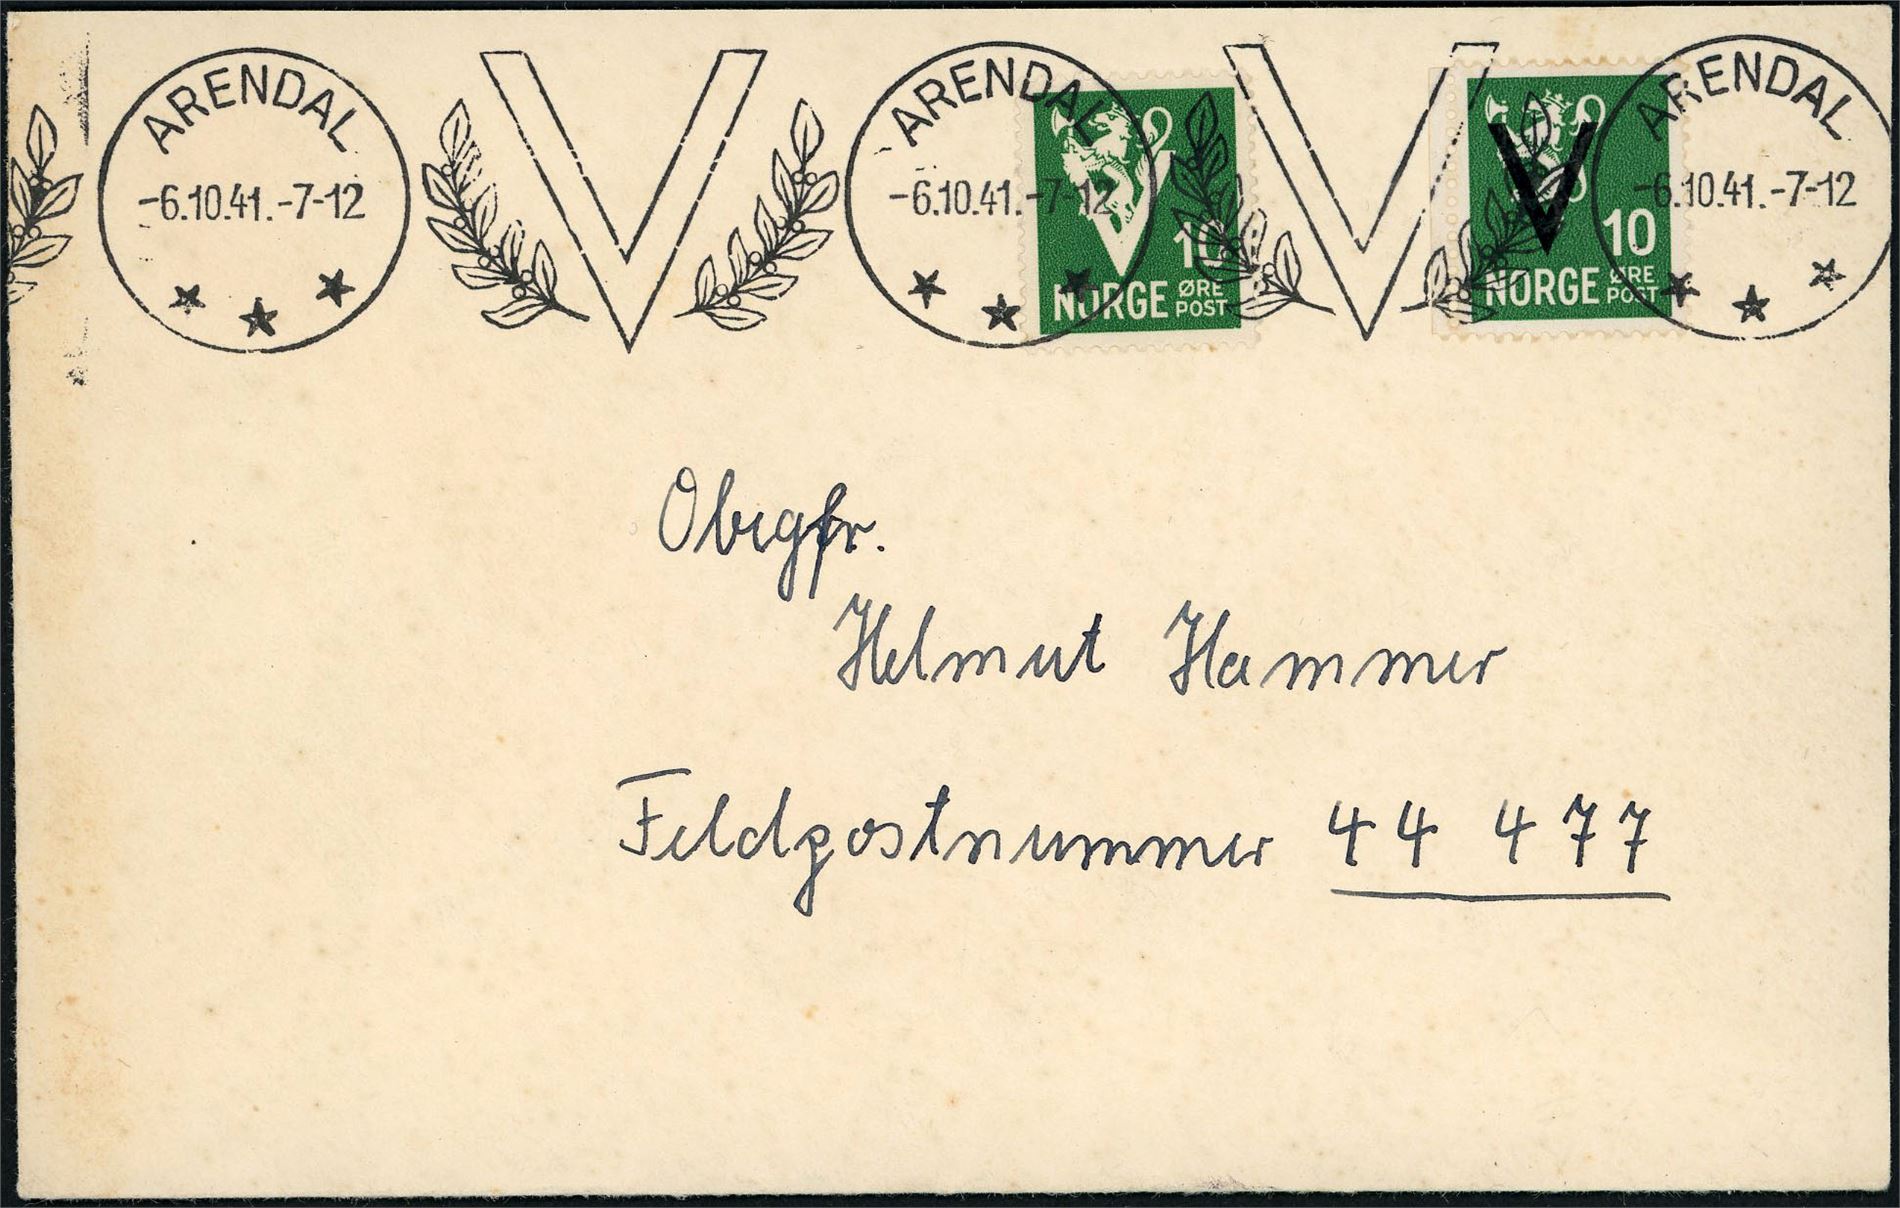 ARENDAL
-6.10.41.-7-12
V
ARENDAL
-6.10.41.-7-12
V
ARENDAL
-6.10.41.-7-12
V
10
NORGE ØRE
POST
V
10
NORGE ØRE
POST
Obrgfr.
Helmut Hammer
Feldpostnummer 44 477